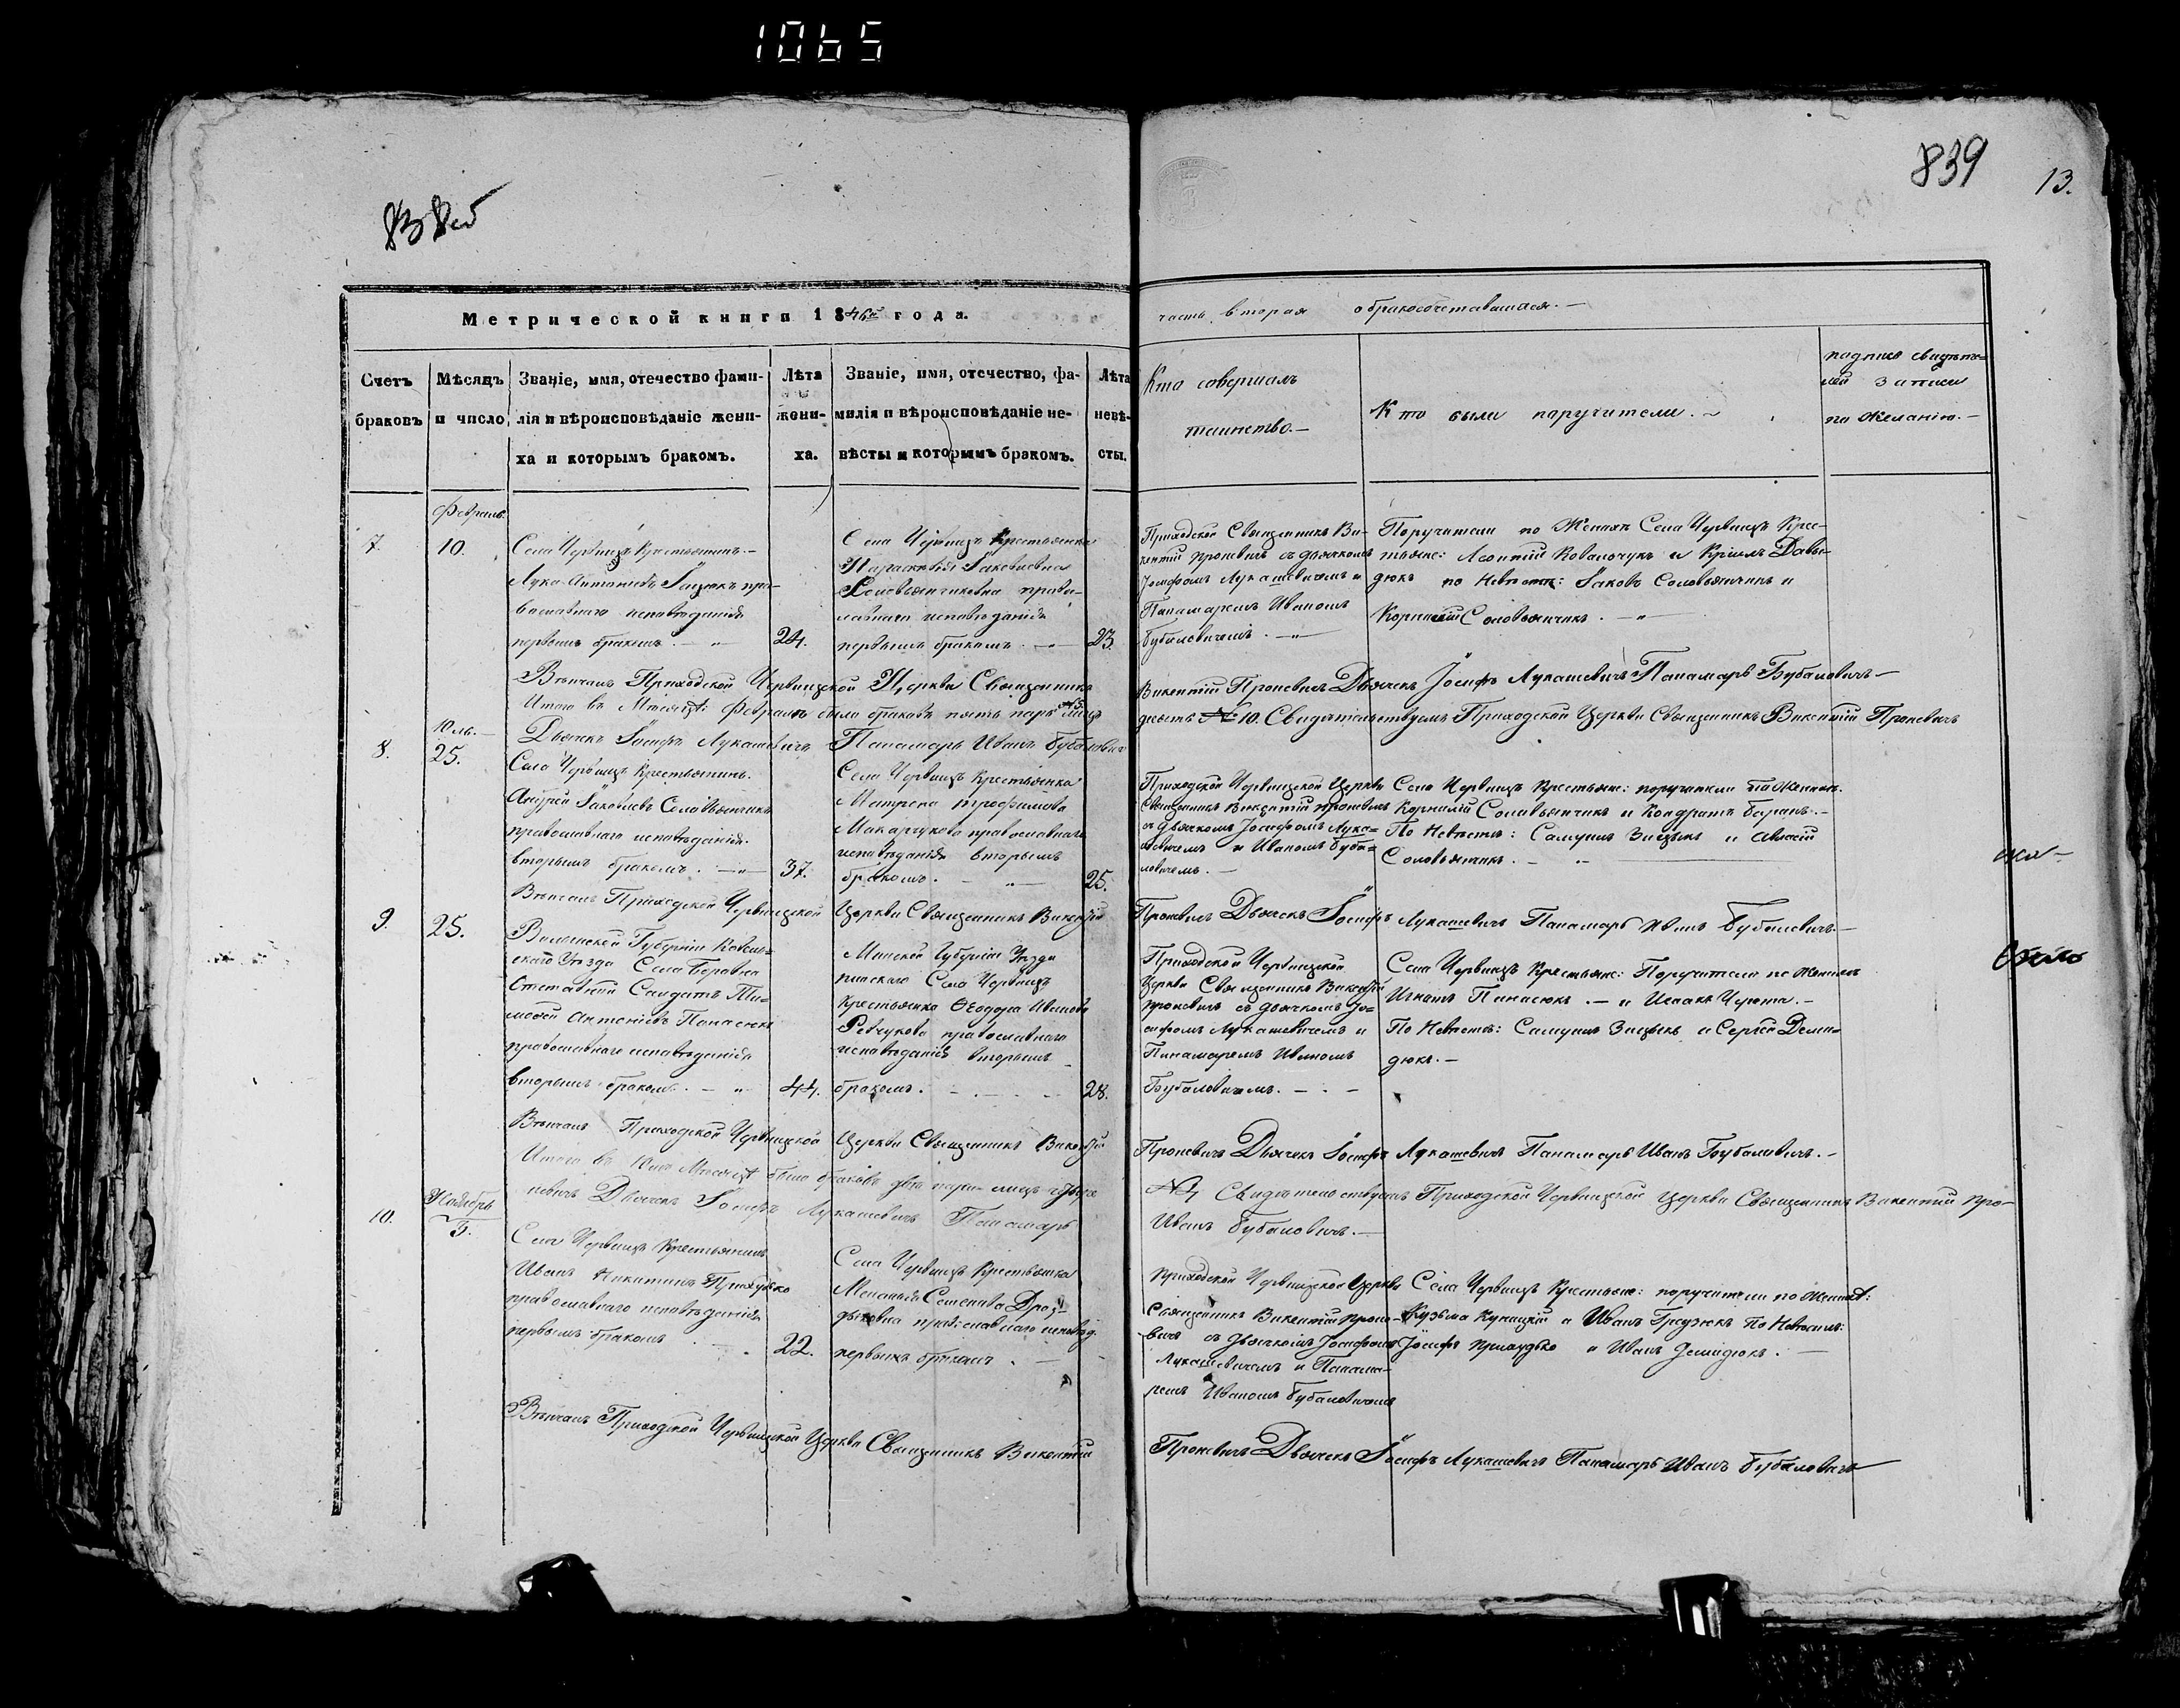 1065
838об
839
13.
Метрической книги 1846го года.
часть вторая о бракосочетавшихся. —
Счетъ браковъ
Мѣсяцъ и число
Званіе, имя, отечество фами-
лія и вѣроисповѣданіе жени-
ха и которымъ бракомъ.
Лѣта жени-
ха.
Званіе, имя, отечество, фа-
милія и вѣроисповѣданіе не-
вѣсты и которымъ бракомъ.
Лѣта невѣ-
сты.
Кто совершалъ
таинство. —
Кто были поручители.
подпись свидѣте-
лей записи
по желанію. —
Февраль.
7.
10.
Села Червищъ Крестьянинъ. —
Лука Антоніевъ Яцюкъ пра-
вославнаго исповѣданія
первымъ бракомъ. — " —
24.
Села Червищъ Крестьянка
Параскевія Яковлевна
Соловьянчиковна право-
славнаго исповѣданія
первымъ бракомъ. —
23.
Приходской Священникъ Ви-
кентій Проневичъ съ дьячкомъ
Іосифомъ Лукашевичемъ и
Панамаремъ Иваномъ
Бубаловичемъ. — " —
Поручители по Женихѣ Села Червищъ Крес-
тьяне: Леонтій Ковальчукъ и Давы-
дюкъ по Невѣстѣ: Яковъ Соловьянчикъ и
Корнилій Соловьянчикъ. — " —
Вѣнчалъ Приходской Червищской Церкви Священникъ Викентій Проневичъ Дьячекъ Іосифъ Лукашевичъ Панамарь Бубаловичъ —
Итого въ Мѣсяцѣ: Февралѣ было браковъ пять паръ лицъ десять № 10. Свидѣтельствуемъ Приходской Церкви Священникъ Викентій Проневичъ
Дьячекъ Іосифъ Лукашевичъ Панамарь Иванъ Бубаловичъ
Юль. —
8.
25.
Села Червищъ Крестьянинъ.
Андрей Яковлевъ Соловьянчикъ
православнаго исповѣданія.
вторымъ бракомъ. — " —
37.
Села Червищъ Крестьянка
Матрона Трофимова
Макарчукова православнаго
исповѣданія вторымъ
бракомъ. — " —
25.
Приходской Червищской Церкви
Священникъ Викентій Проневичъ
съ дьячкомъ Іосифомъ Лука-
шевичемъ и Иваномъ Буба-
ловичемъ. —
Села Червищъ Крестьяне: поручители по Женихѣ.
Корнилій Соловьянчикъ и Кондратъ Баранъ. —
По Невѣстѣ: Самуилъ и
Соловьянчикъ. —
Вѣнчалъ Приходской Червищской Церкви Священникъ Викентій Проневичъ Дьячекъ Іосифъ Лукашевичъ Панамарь Иванъ Бубаловичъ. —
9.
25.
Волынской Губерніи Ковель-
скаго Уѣзда Села
Отставный Солдатъ Ти-
мофей Антоніевъ Панасюкъ
православнаго исповѣданія
вторымъ бракомъ. — " —
44.
Минской Губерніи Уѣзда
Пинскаго Села Червищъ
Крестьянка Ѳеодора Иванова
Ревчукова православнаго
исповѣданія вторымъ
бракомъ.
28.
Приходской Червищской
Церкви Священникъ Викентій
Проневичъ съ дьячкомъ Іо-
сифомъ Лукашевичемъ и
Панамаремъ Иваномъ
Бубаловичемъ. —
Села Червищъ Крестьяне: Поручители по Женихѣ
Игнатъ Панасюкъ. — и Исаакъ
По Невѣстѣ: Самуилъ и Сергій Деми-
дюкъ. —
Вѣнчалъ Приходской Червищской Церкви Священникъ Викентій Проневичъ Дьячекъ Іосифъ Лукашевичъ Панамарь Иванъ Бубаловичъ. —
Итого въ Юлѣ Мѣсяцѣ было браковъ двѣ пары лицъ
№ 4 Свидѣтельствуемъ Приходской Червищской Церкви Священникъ Викентій Про-
невичъ Дьячекъ Іосифъ Лукашевичъ Панамарь Иванъ Бубаловичъ. —
Ноябрь
10.
5.
Села Червищъ Крестьянинъ
Иванъ Никитинъ
православнаго исповѣданія
первымъ бракомъ
22.
Села Червищъ Крестьянка
Меланья Семенова
православнаго исповѣд.
первымъ бракомъ. —
Приходской Червищской Церкви
Священникъ Викентій Проне-
вичъ съ дьячкомъ Іосифомъ
Лукашевичемъ и Панама-
ремъ Иваномъ Бубаловичемъ
Села Червищъ Крестьяне: поручители по Женихѣ:
Кузьма и Иванъ По Невѣстѣ:
Іосифъ и Иванъ Демидюкъ. —
Вѣнчалъ Приходской Червищской Церкви Священникъ Викентій Проневичъ Дьячекъ Іосифъ Лукашевичъ Панамарь Иванъ Бубаловичъ